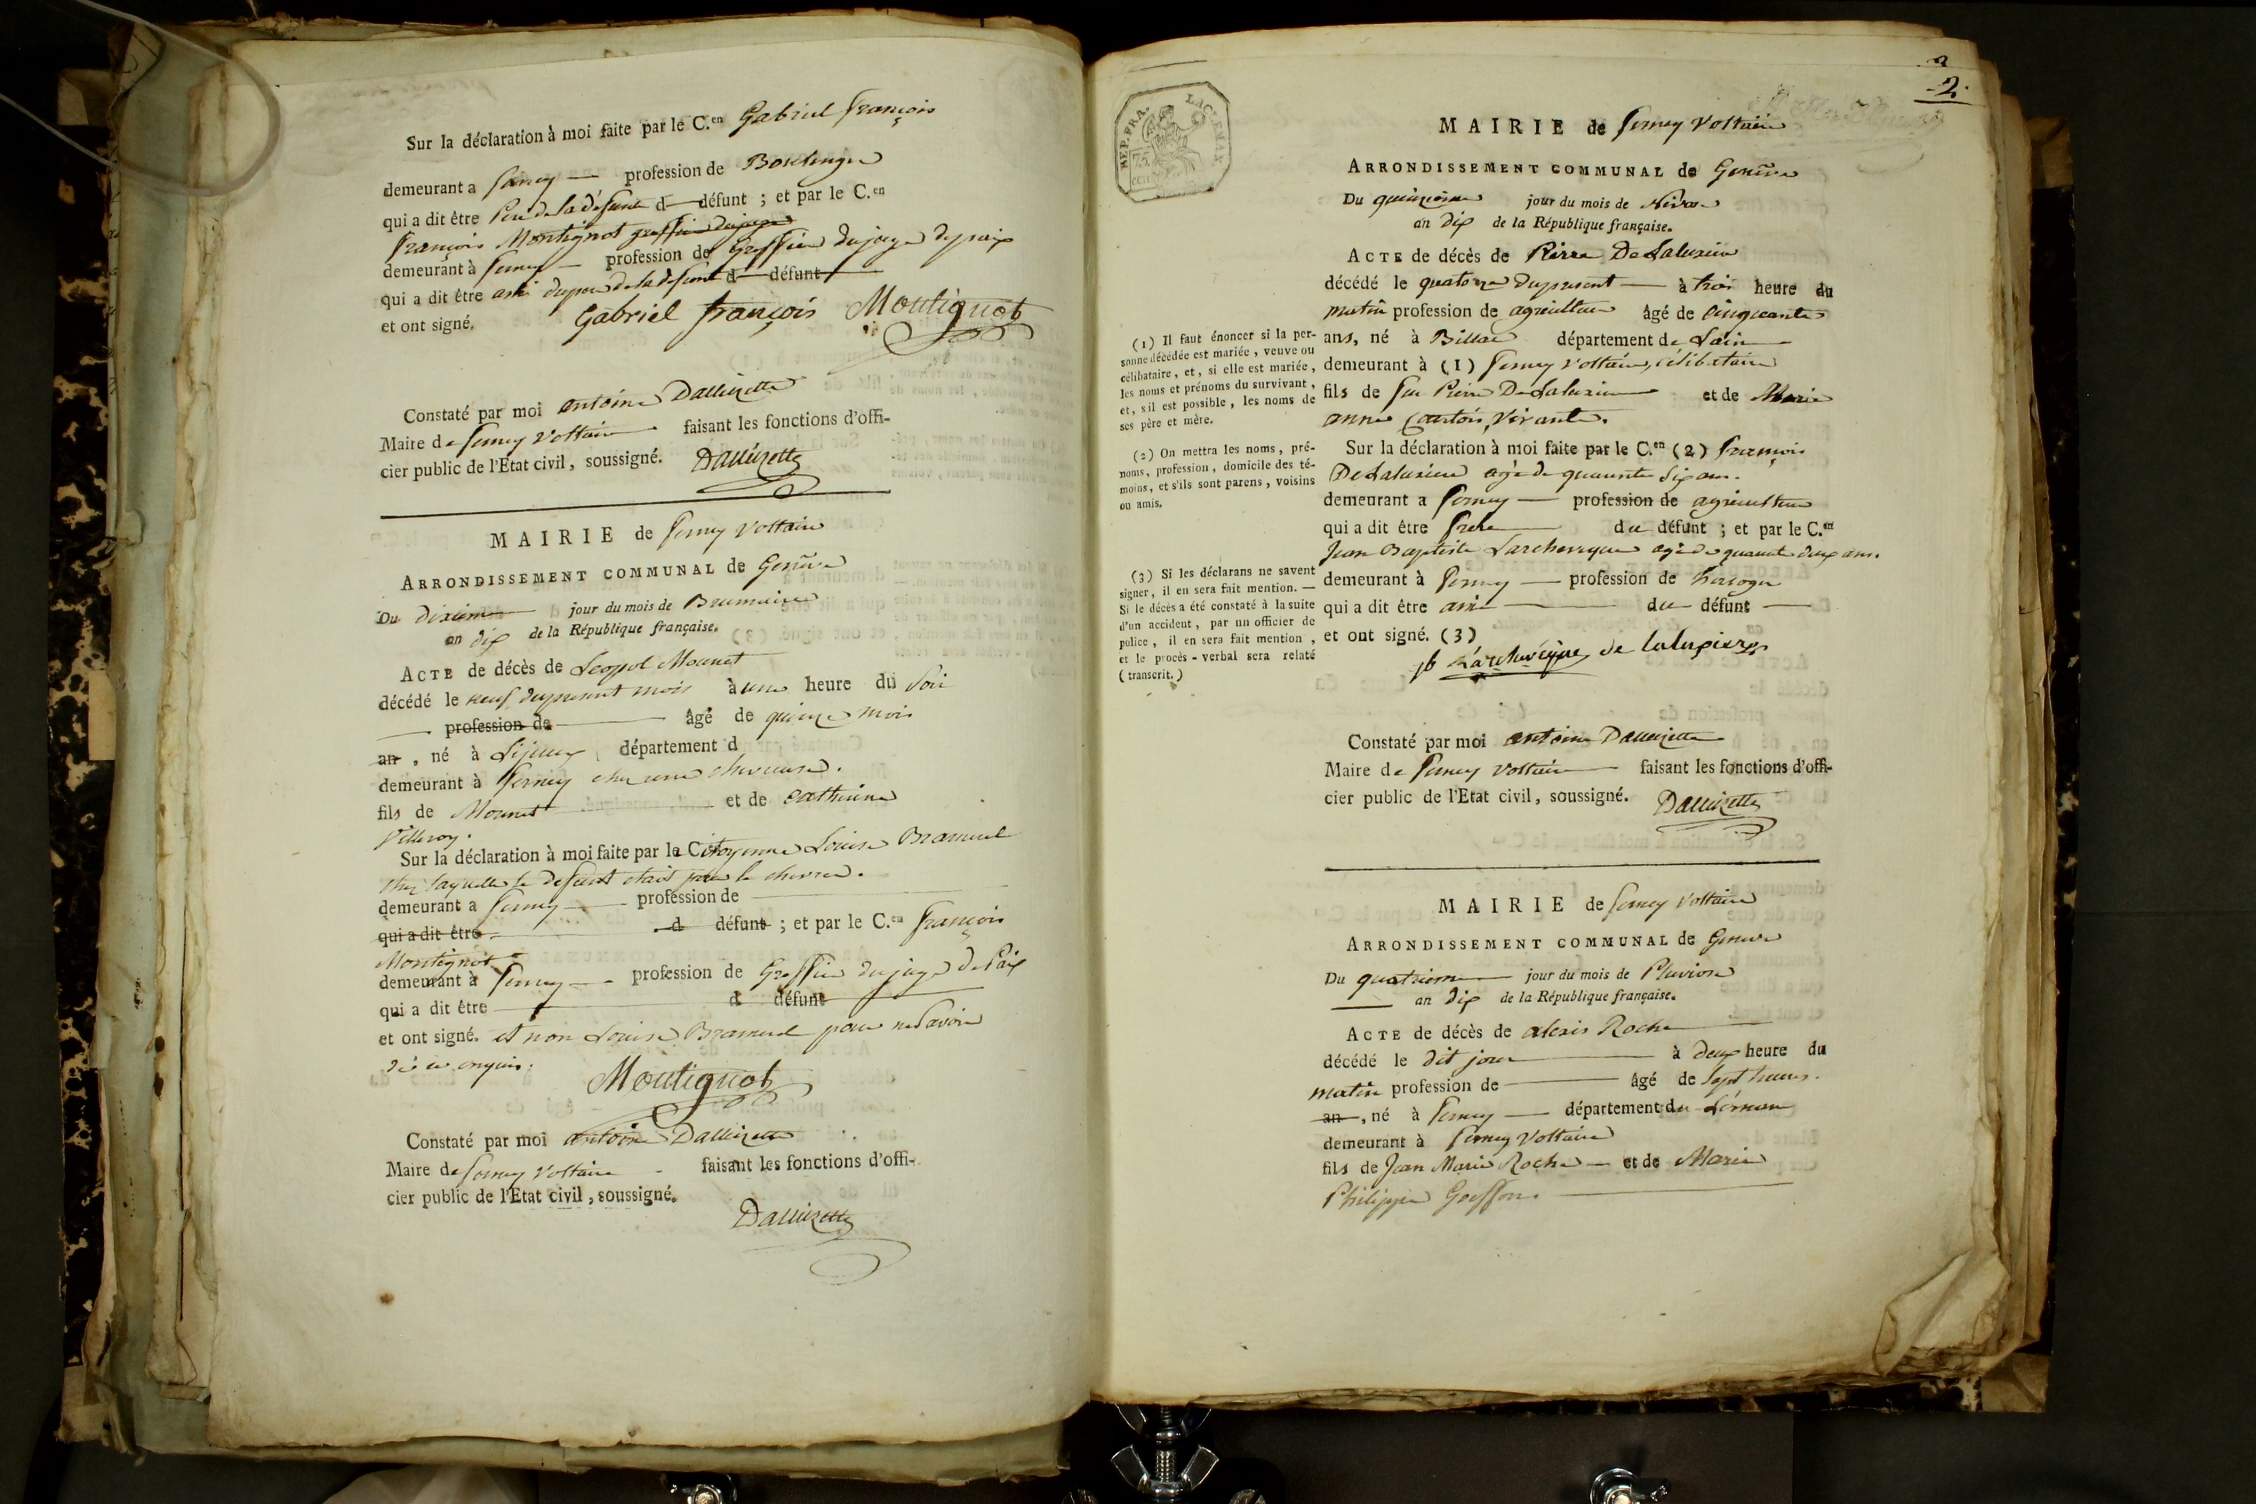 Sur la déclaration à moi faite par le C.en Gabriel françois
demeurant a ferney profession de Boulenger
qui a dit être Pere de la défunte d défunt ; et par le C.en
François Montignot greffier du juge
demeurant à ferney profession de Greffier du juge de paix
qui a dit être ami du pere de la defunte d défunt
et ont signé. Gabriel françois Moutignot
Constaté par moi antoine Dallizette
Maire de ferney Voltaire faisant les fonctions d'offi-
cier public de l'Etat civil, soussigné. Dallizette
MAIRIE de ferney Voltaire
ARRONDISSEMENT COMMUNAL de Genève
Du dixieme jour du mois de Brumaire
an dix de la République française.
ACTE de décès de Leopol Mounet
décédé le neuf du present mois à une heure du Soir
profession de âgé de quinze mois
an, né à département d
demeurant à ferney chez une chevreuse.
fils de Mounet et de Catherine
Villeroy.
Sur la déclaration à moi faite par le Citoyenne Louise Brameret
chez laquelle le defunt etait pour la chevree.
demeurant a ferney profession de
qui a dit être d défunt ; et par le C.en françois
Montignot
demeurant à ferney profession de Greffier du juge de Paix
qui a dit être d défunt
et ont signé. et non Louise Brameret pour ne savoir
de ce enquis.
Moutignot
Constaté par moi antoine Dallizette
Maire de ferney Voltaire faisant les fonctions d'offi-
cier public de l'Etat civil, soussigné.
Dallizette
2
2.
REP. FRA.
75
CEN
MAIRIE de ferney Voltaire
ARRONDISSEMENT COMMUNAL de Genève
Du quinzieme jour du mois de Nivose
an dix de la République française.
ACTE de décès de Pierre DeLaluxiere
décédé le quatorze du present à trois heure du
matin profession de agriculteur âgé de Cinquante
ans, né à Billac département de Lain
demeurant à (1) ferney Voltaire, célibataire
fils de feu Pierre DeLaluxiere et de Marie
anne Courtois, Vivante.
(1) Il faut énoncer si la per-
sonne décédée est mariée, veuve ou
célibataire, et, si elle est mariée,
les noms et prénoms du survivant,
et, s'il est possible, les noms de
ses père et mère.
Sur la déclaration à moi faite par le C.en (2) françois
DeLaluxiere agé de quarante six ans.
demeurant a ferney profession de agriculteur
qui a dit être frere du défunt ; et par le C.en
Jean Baptiste Larcheveque agé de quarant deux ans.
demeurant à ferney profession de horloger
qui a dit être ami du défunt
et ont signé. (3)
(2) On mettra les noms, pré-
noms, profession, domicile des té-
moins, et s'ils sont parens, voisins
ou amis.
(3) Si les déclarans ne savent
signer, il en sera fait mention. —
Si le décès a été constaté à la suite
d'un accident, par un officier de
police, il en sera fait mention,
et le procès-verbal sera relaté
(transcrit.)
jb Larchevêque de
Constaté par moi antoine Dallizette
Maire de ferney Voltaire faisant les fonctions d'offi-
cier public de l'Etat civil, soussigné. Dallizette
MAIRIE de ferney Voltaire
ARRONDISSEMENT COMMUNAL de Geneve
Du quatrieme jour du mois de Pluviose
an dix de la République française.
ACTE de décès de alexis Roche
décédé le dit jour à deux heure du
matin profession de âgé de Sept heures.
an, né à ferney département du Léman
demeurant à ferney Voltaire
fils de Jean Marie Roche et de Marie
Philippe Goeffon.